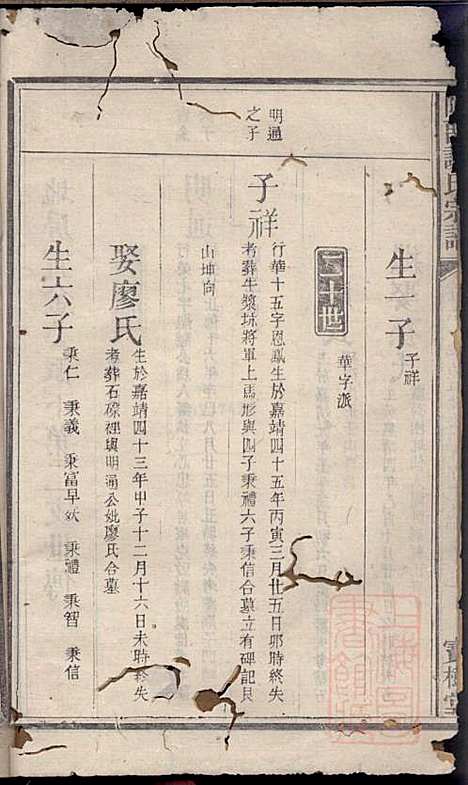 氏宗譜
寶樹堂
生一子 子祥
二十世 華字派
明通之子
子祥
行華十五字恩鳳生於嘉靖四十五年丙寅三月廿五日卯時終失
考葬牛漿坵將軍上馬形與四子秉禮六子秉信合墓立有碑記艮
山坤向
娶廖氏
生於嘉靖四十三年甲子十二月十六日未時終失
考葬石磜裡與明通公妣廖氏合墓
生六子
秉仁 秉義 秉富早殀 秉禮 秉智 秉信